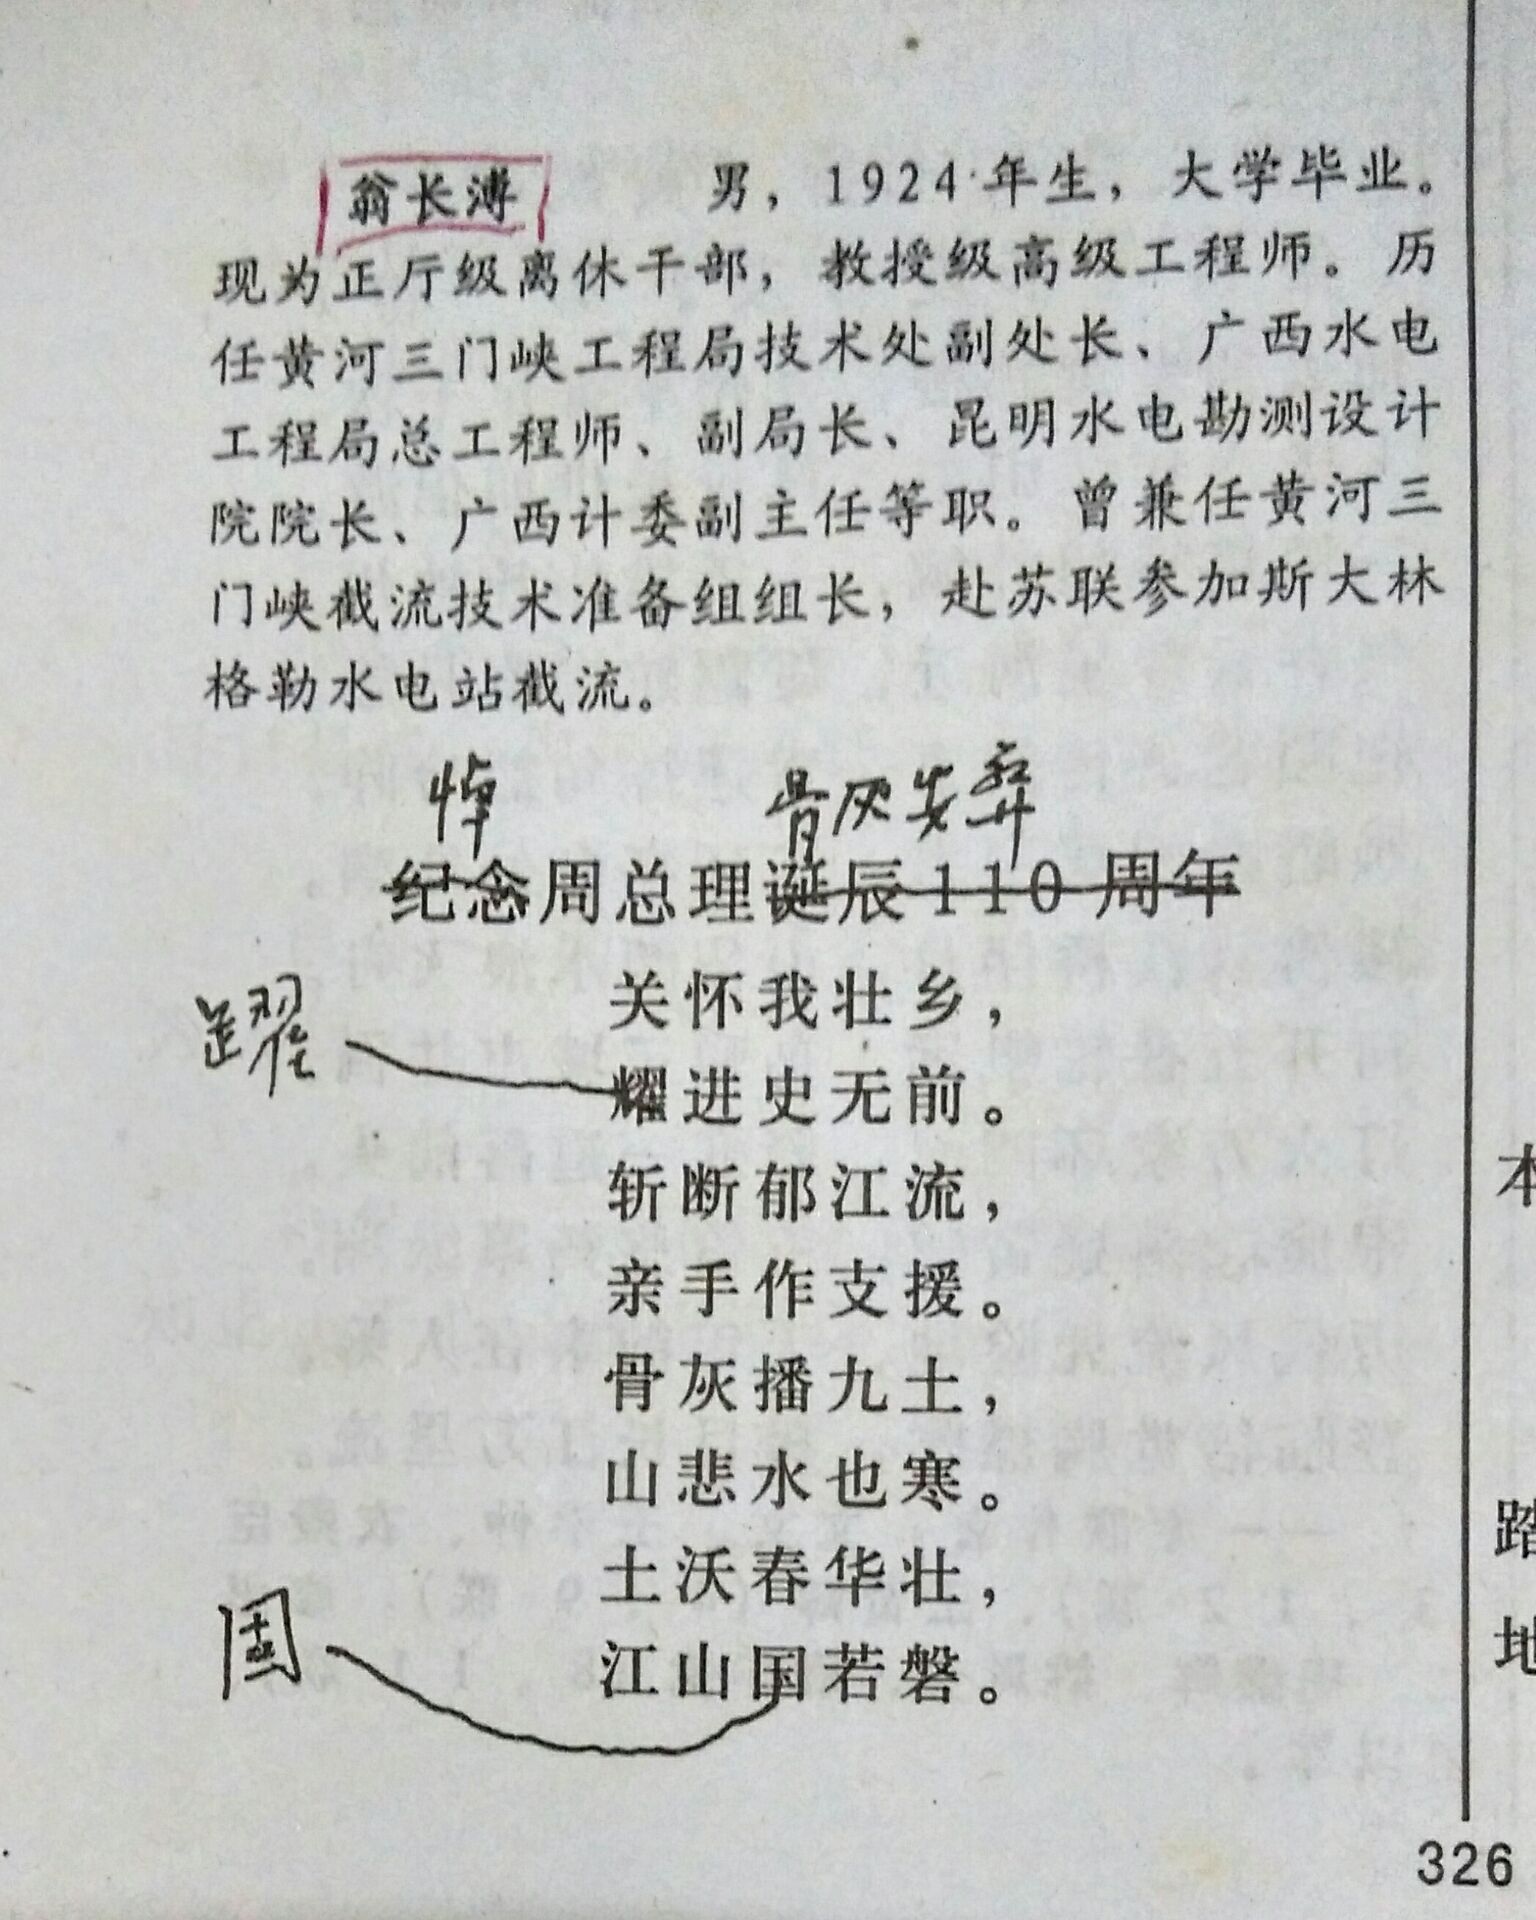 翁长溥 男，1924年生，大学毕业。
现为正厅级离休干部，教授级高级工程师。历
任黄河三门峡工程局技术处副处长、广西水电
工程局总工程师、副局长、昆明水电勘测设计
院院长、广西计委副主任等职。曾兼任黄河三
门峡截流技术准备组组长，赴苏联参加斯大林
格勒水电站截流。
悼 骨灰安葬
纪念周总理诞辰110周年
关怀我壮乡，
躍
耀进史无前。
斩断郁江流，
亲手作支援。
骨灰播九土，
山悲水也寒。
土沃春华壮，
固
江山国若磐。
本
踏
地
326